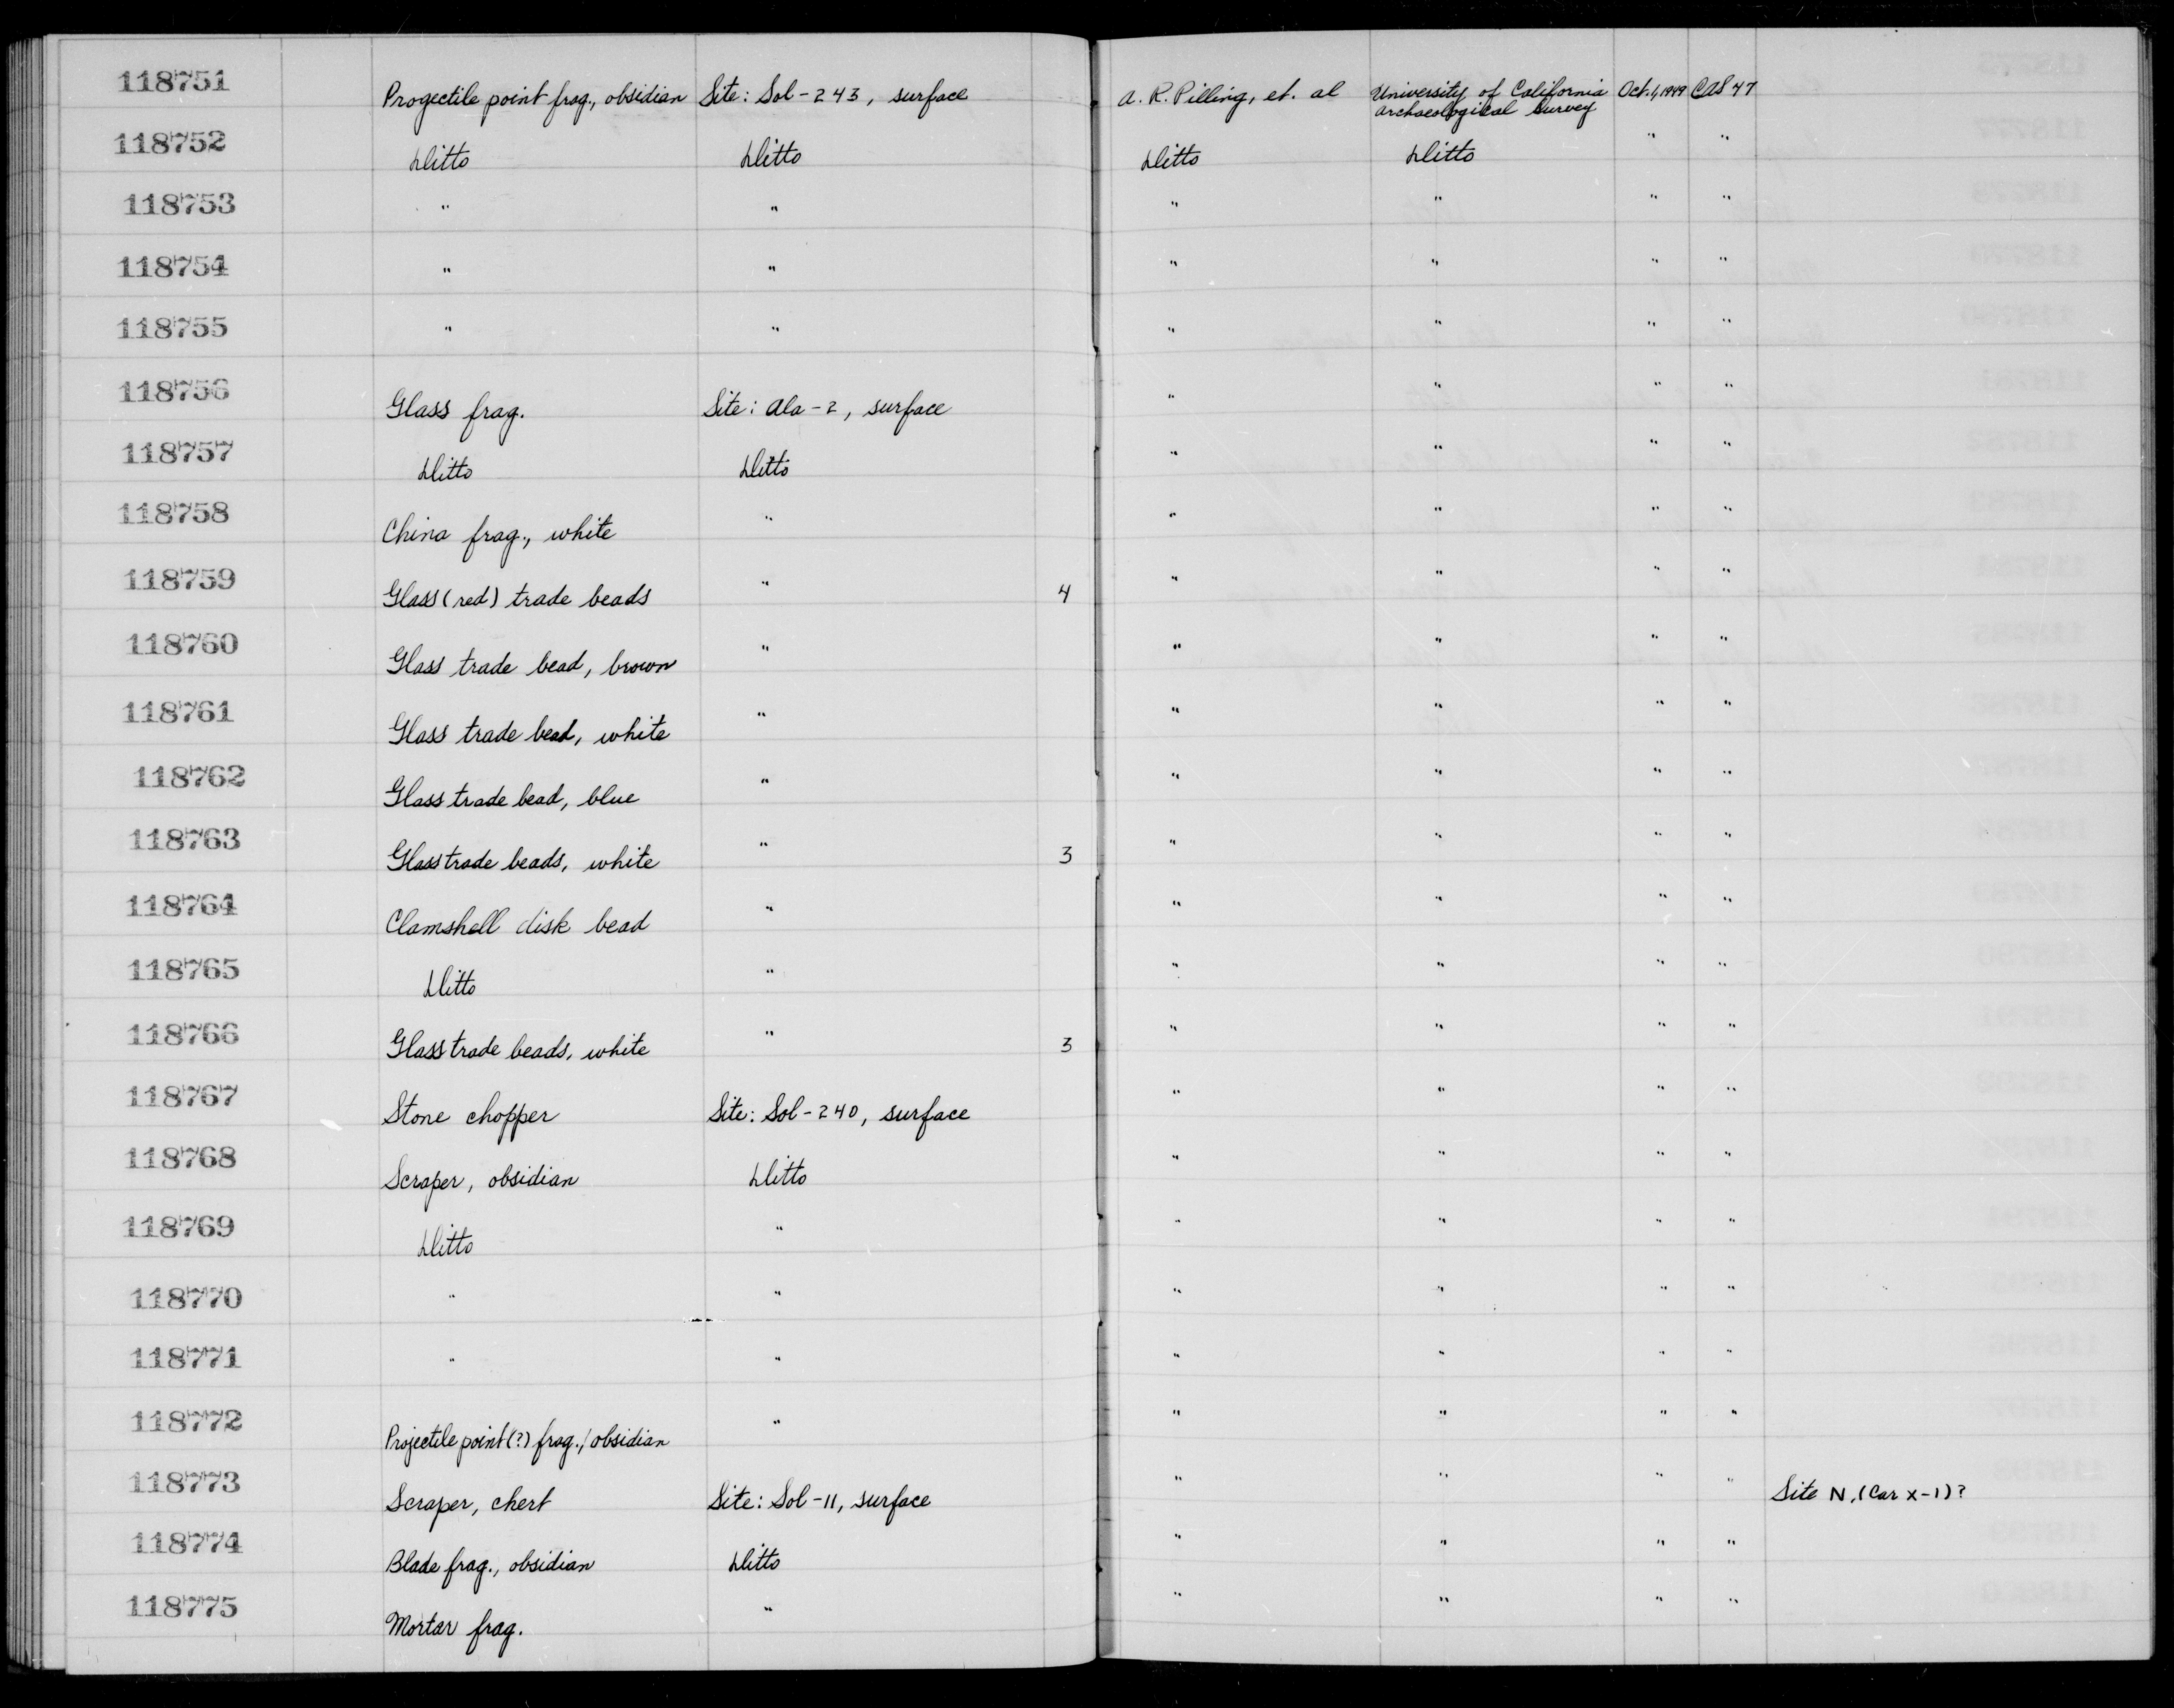 118751 Progectile point frag., obsidian Site: Sol-243, surface A. R. Pilling, et. al University of California Archaeological Survey Oct. 1, 1949 CAS 47
118752 Ditto Ditto Ditto Ditto " "
118753 " " " " " "
118754 " " " " " "
118755 " " " " " "
118756 Glass frag. Site: Ala-2, surface " " " "
118757 Ditto Ditto " " " "
118758 China frag., white " " " " "
118759 Glass (red) trade beads " 4 " " " "
118760 Glass trade bead, brown " " " " "
118761 Glass trade bead, white " " " " "
118762 Glass trade bead, blue " " " " "
118763 Glass trade beads, white " 3 " " " "
118764 Clamshell disk bead " " " " "
118765 Ditto " " " " "
118766 Glass trade beads, white " 3 " " " "
118767 Stone chopper Site: Sol-240, surface " " " "
118768 Scraper, obsidian Ditto " " " "
118769 Ditto " " " " "
118770 " " " " " "
118771 " " " " " "
118772 Projectile point (?) frag., obsidian " " " " "
118773 Scraper, chert Site: Sol-11, surface " " " " Site N, (Car x-1)?
118774 Blade frag., obsidian Ditto " " " "
118775 Mortar frag. " " " " "